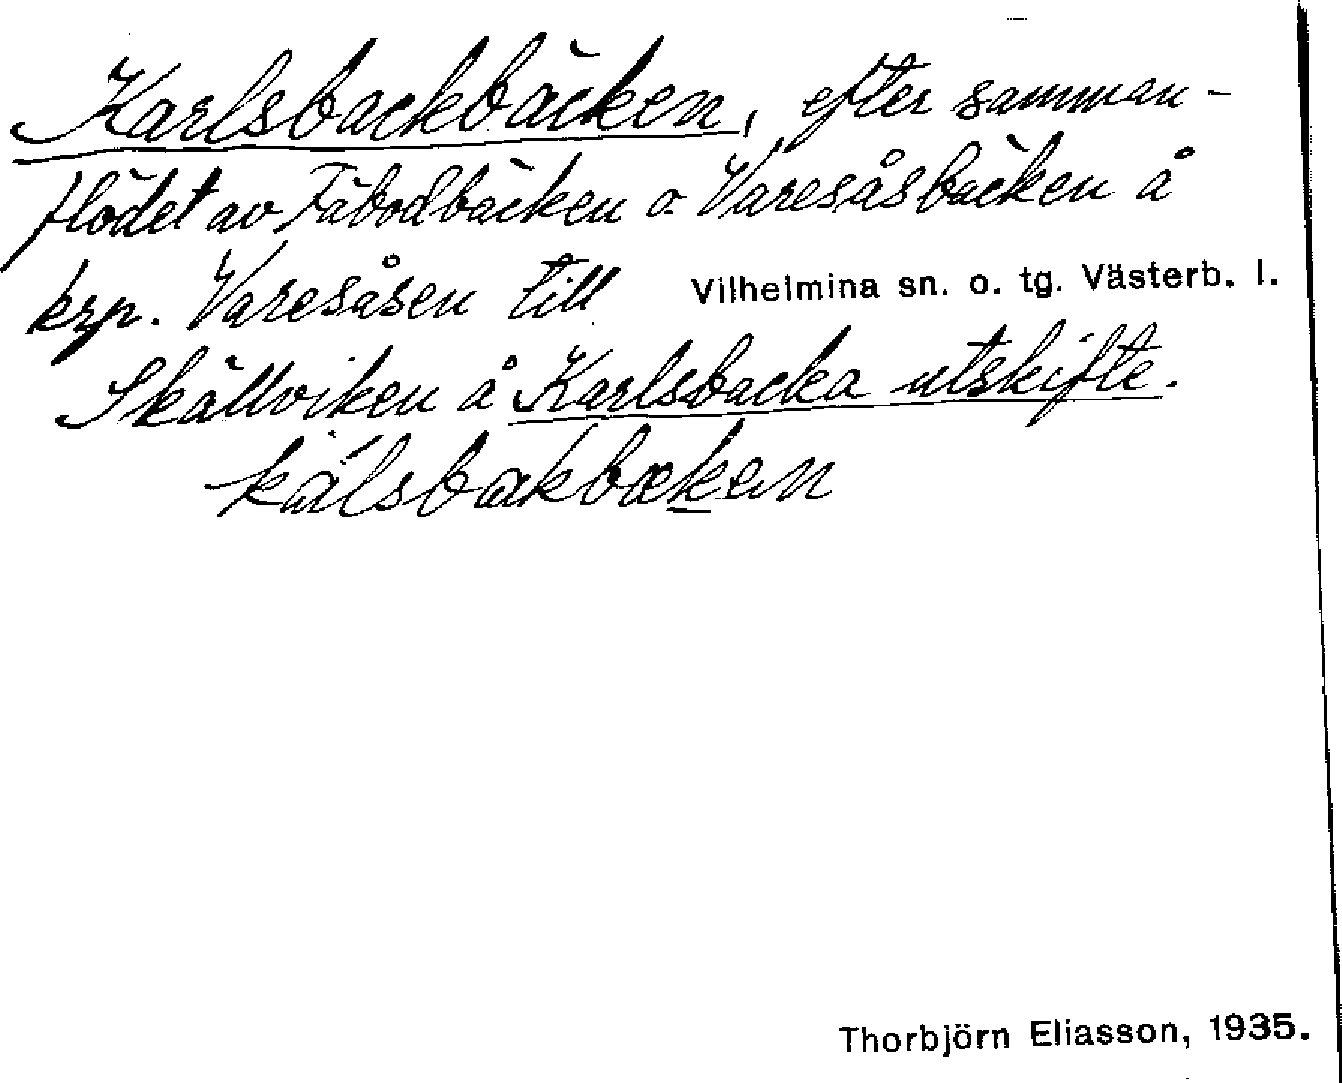 Karlsbackbäcken, efter samman-
flödet av Fäbodbäcken o. Varesåsbäcken å
krp. Varesåsen till
Vilhelmina sn. o. tg. Västerb. l.
Skällviken å Karlsbacka utskifte.
Thorbjörn Eliasson, 1935.